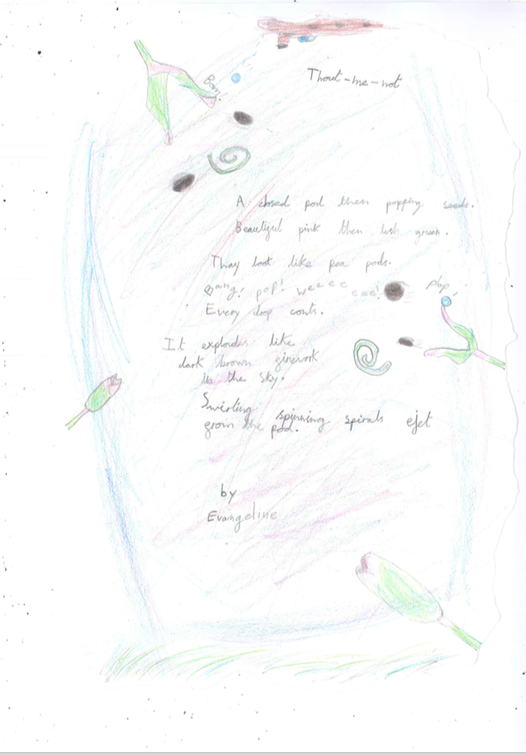 Thout-me-not
Bang!
A closed pod then popping seeds.
Beautiful pink then lush green.
They look like pea pods.
Bang! pop! weeee eee!
pop!
Every drop counts.
It explodes like
dark brown firework
in the sky.
Swirling spinning spirals eject
from the pod.
by
Evangeline